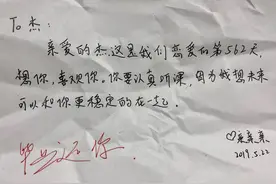 To 杰:
亲爱的杰,这是我们恋爱的第562天
想你,喜欢你。你要认真听课,因为我想未来
可以和你更稳定的在一起。
毕是还你.
♡亲亲亲
2019.5.22